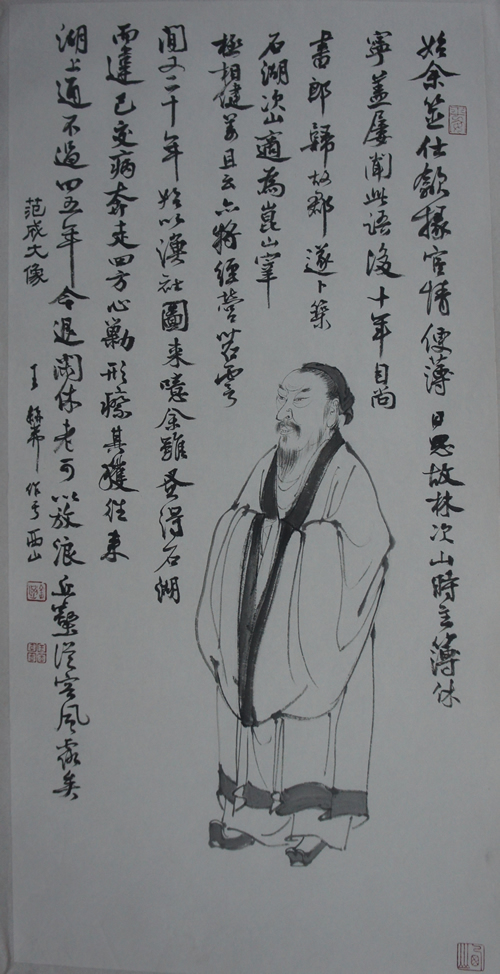 始余筮仕歙掾宦情便薄日思故林次山時主簿休
寧蓋屢聞此語後十年自尚
書郎歸故郡遂卜築
石湖次山適為崑山宰
極相健羨且云亦將經營苕霅
間又二十年始以漁社圖來噫余雖蚤得石湖
而違己交病奔走四方心勩形瘵其獲往來
湖上通不過四五年今退閑休老可以放浪丘壑從容風露矣
范成大像
作于西山